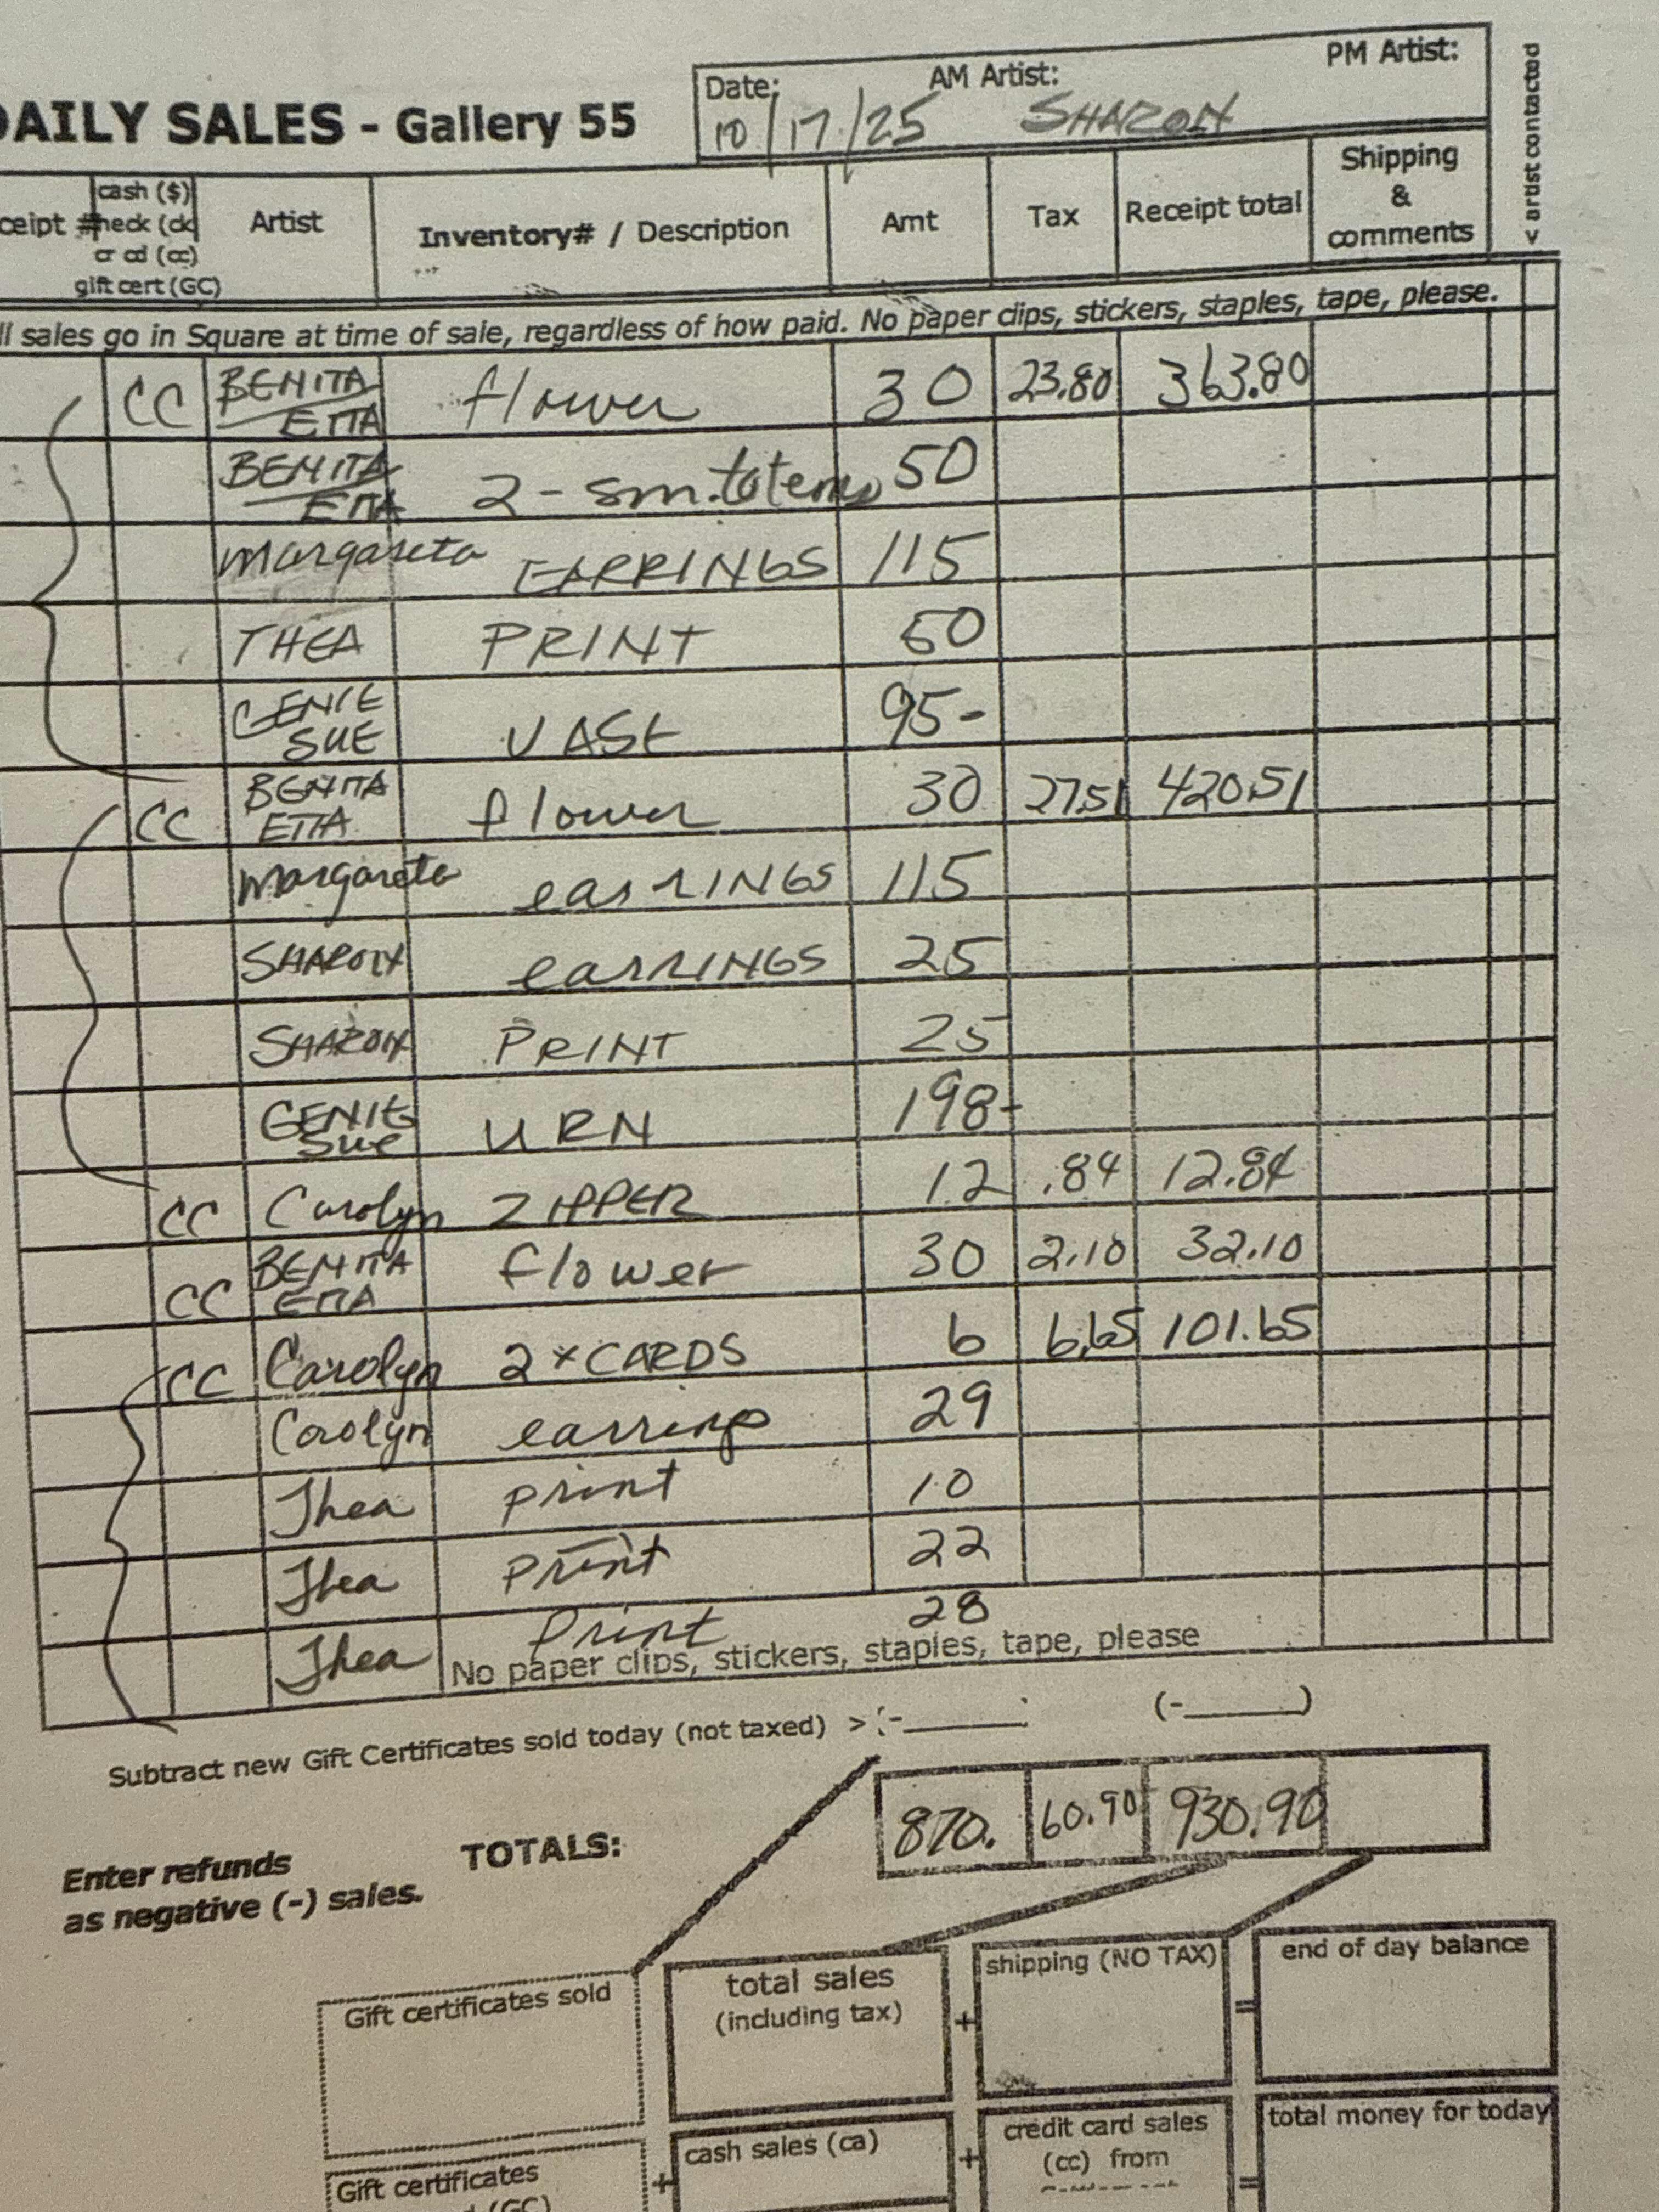 DAILY SALES - Gallery 55
Date: AM Artist: PM Artist:
10/17/25 SHARON
< artist contacted
ceipt # cash ($) heck (ck) cr cd (cc) gift cert (GC) Artist Inventory# / Description Amt Tax Receipt total Shipping & comments
ll sales go in Square at time of sale, regardless of how paid. No paper clips, stickers, staples, tape, please.
CC BENITA ETTA flower 30 23.80 363.80
BENITA ETTA 2 - sm. totems 50
Margareta EARRINGS 115
THEA PRINT 50
GENIE SUE VASE 95-
CC BENITA ETTA flower 30 27.51 420.51
Margareta earrINGS 115
SHARON earrINGS 25
SHARON PRINT 25
GENIE Sue URN 198-
CC Carolyn ZIPPER 12 .84 12.84
CC BENITA ETTA flower 30 2.10 32.10
CC Carolyn 2 x CARDS 6 6.65 101.65
Carolyn earrings 29
Thea print 10
Thea print 22
Thea Print 28
No paper clips, stickers, staples, tape, please
Subtract new Gift Certificates sold today (not taxed) > (-______ (-______)
TOTALS: 870. 60.90 930.90
Enter refunds
as negative (-) sales.
Gift certificates sold
total sales
(including tax)
+
shipping (NO TAX)
=
end of day balance
Gift certificates
(GC)
+
cash sales (ca)
+
credit card sales
(cc) from
=
total money for today